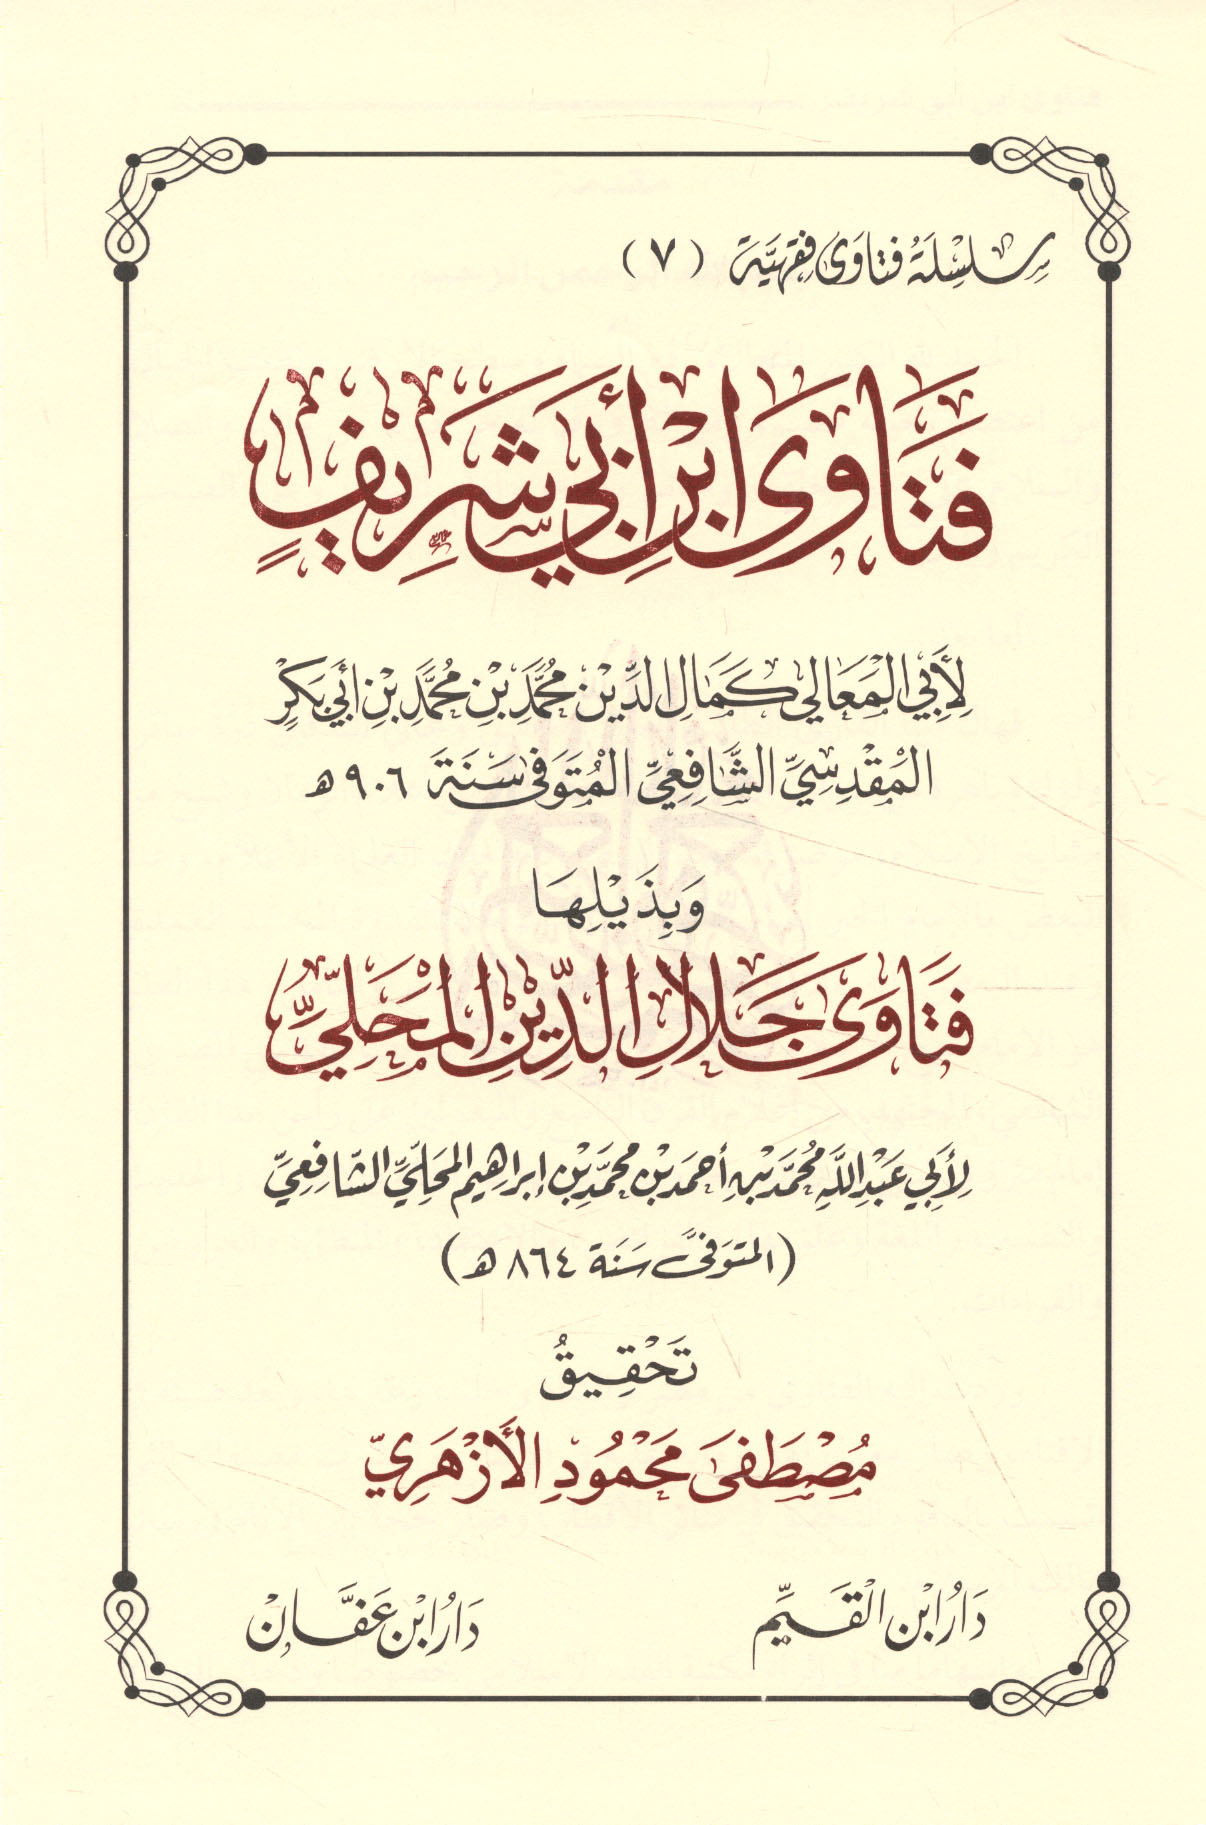 سِلْسِلَةُ فتاوَى فِقهِيَّة (٧)
فَتَاوَى ابْنِ أَبِي شَرِيفٍ
لِأَبِي الْمَعَالِي كَمَالِ الدِّيْنِ مُحَمَّدِ بْنِ مُحَمَّدِ بْنِ أَبِي بَكْرٍ
الْمَقْدِسِيِّ الشَّافِعِيِّ الْمُتَوَفَّى سَنَةَ ٩٠٦ هـ
وَبِذَيْلِهَا
فَتَاوَى جَلَالِ الدِّيْنِ الْمَحَلِّيِّ
لِأَبِي عَبْدِ اللَّهِ مُحَمَّدِ بْنِ أَحمَدَ بْنِ محمَّدِ بْنِ إبرَاهِيم المحَلِّيِّ الشَّافِعِيِّ
(المتوَفَّى سَنَة ٨٦٤ هـ)
تَحْقِيقُ
مُصْطَفَى مَحْمُودِ الْأَزْهَرِيّ
دَارُ ابْنِ الْقَيِّمِ
دَارُ ابْنِ عَفَّانْ